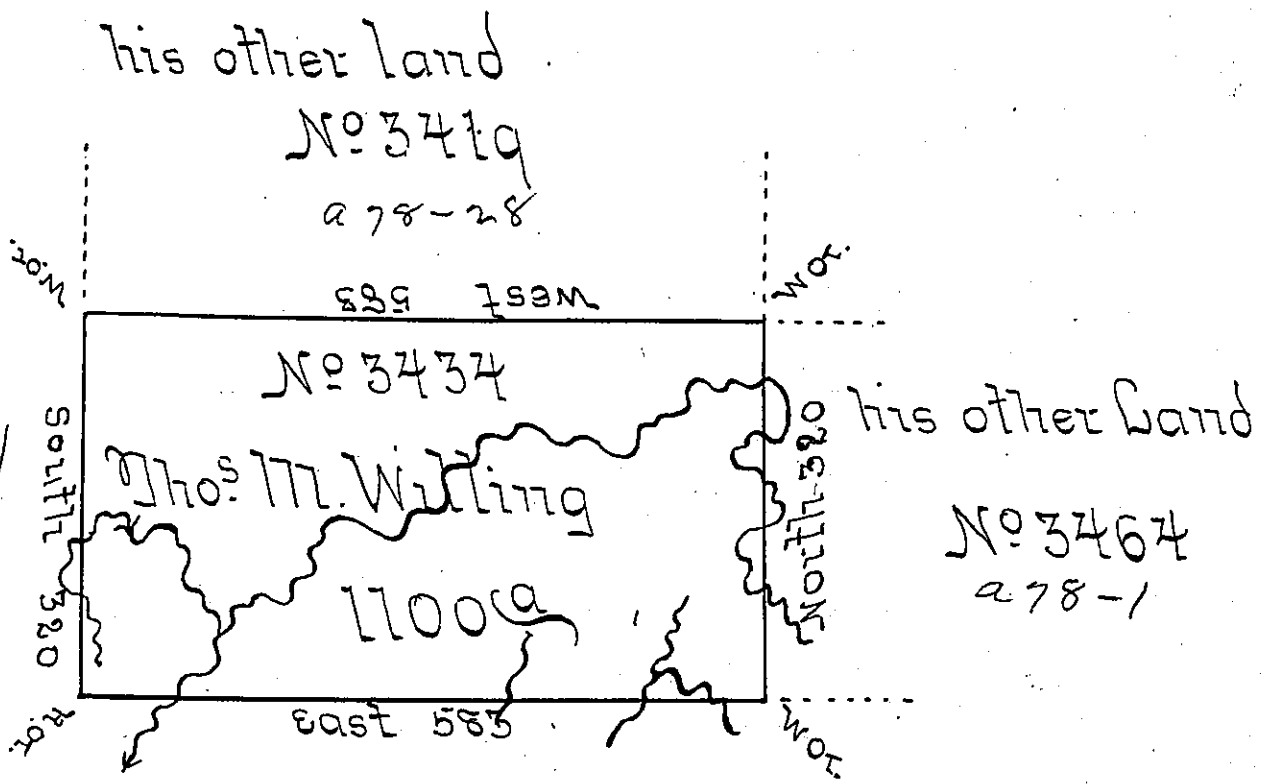 his other land
Nº 3419
a 78-28
W.or.
W or.
West 583
Nº 3434
South 320
Thoˢ. M. Willing
1100ᵃ
North 320
his other Land
Nº 3464
a 78-1
East 583
W or.